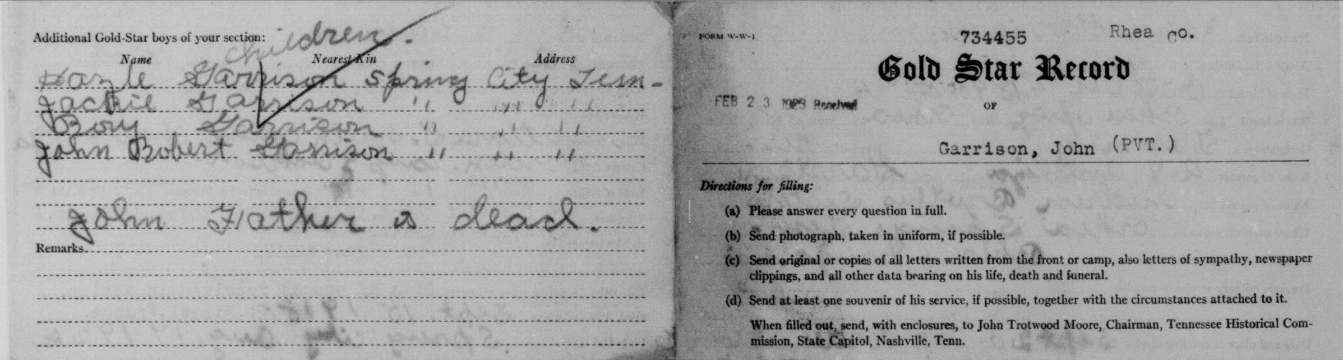 Additional Gold-Star boys of your section:
Children.
Name Nearest Kin Address
Hazle Garrison Spring City Tenn-
Jackie Garrison " " "
Rory Garrison " " "
John Robert Garrison " " "
John Father is dead.
Remarks
FORM W-W-1
734455 Rhea Co.
Gold Star Record
FEB 23 Received
OF
Garrison, John (PVT.)
Directions for filling:
(a) Please answer every question in full.
(b) Send photograph, taken in uniform, if possible.
(c) Send original or copies of all letters written from the front or camp, also letters of sympathy, newspaper
clippings, and all other data bearing on his life, death and funeral.
(d) Send at least one souvenir of his service, if possible, together with the circumstances attached to it.
When filled out, send, with enclosures, to John Trotwood Moore, Chairman, Tennessee Historical Com-
mission, State Capitol, Nashville, Tenn.